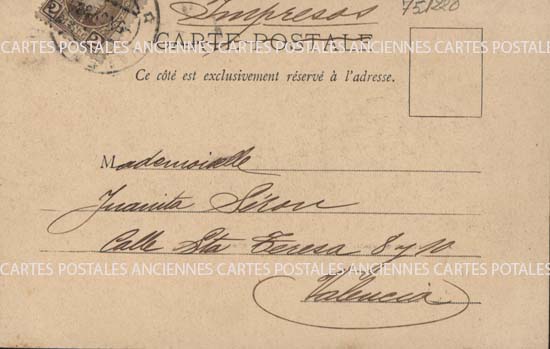 Impresos
751220
CARTE POSTALE
Ce côté est exclusivement réservé à l'adresse.
CARTES POSTALES ANCIENNES CARTES POSTALES ANCIENNES CARTES POSTALES
Mademoiselle
Juanita Séron
Calle Sta Teresa 8 y 10
CARTES POSTALES ANCIENNES CARTES POSTALES ANCIENNES CARTES POSTALES
Valencia